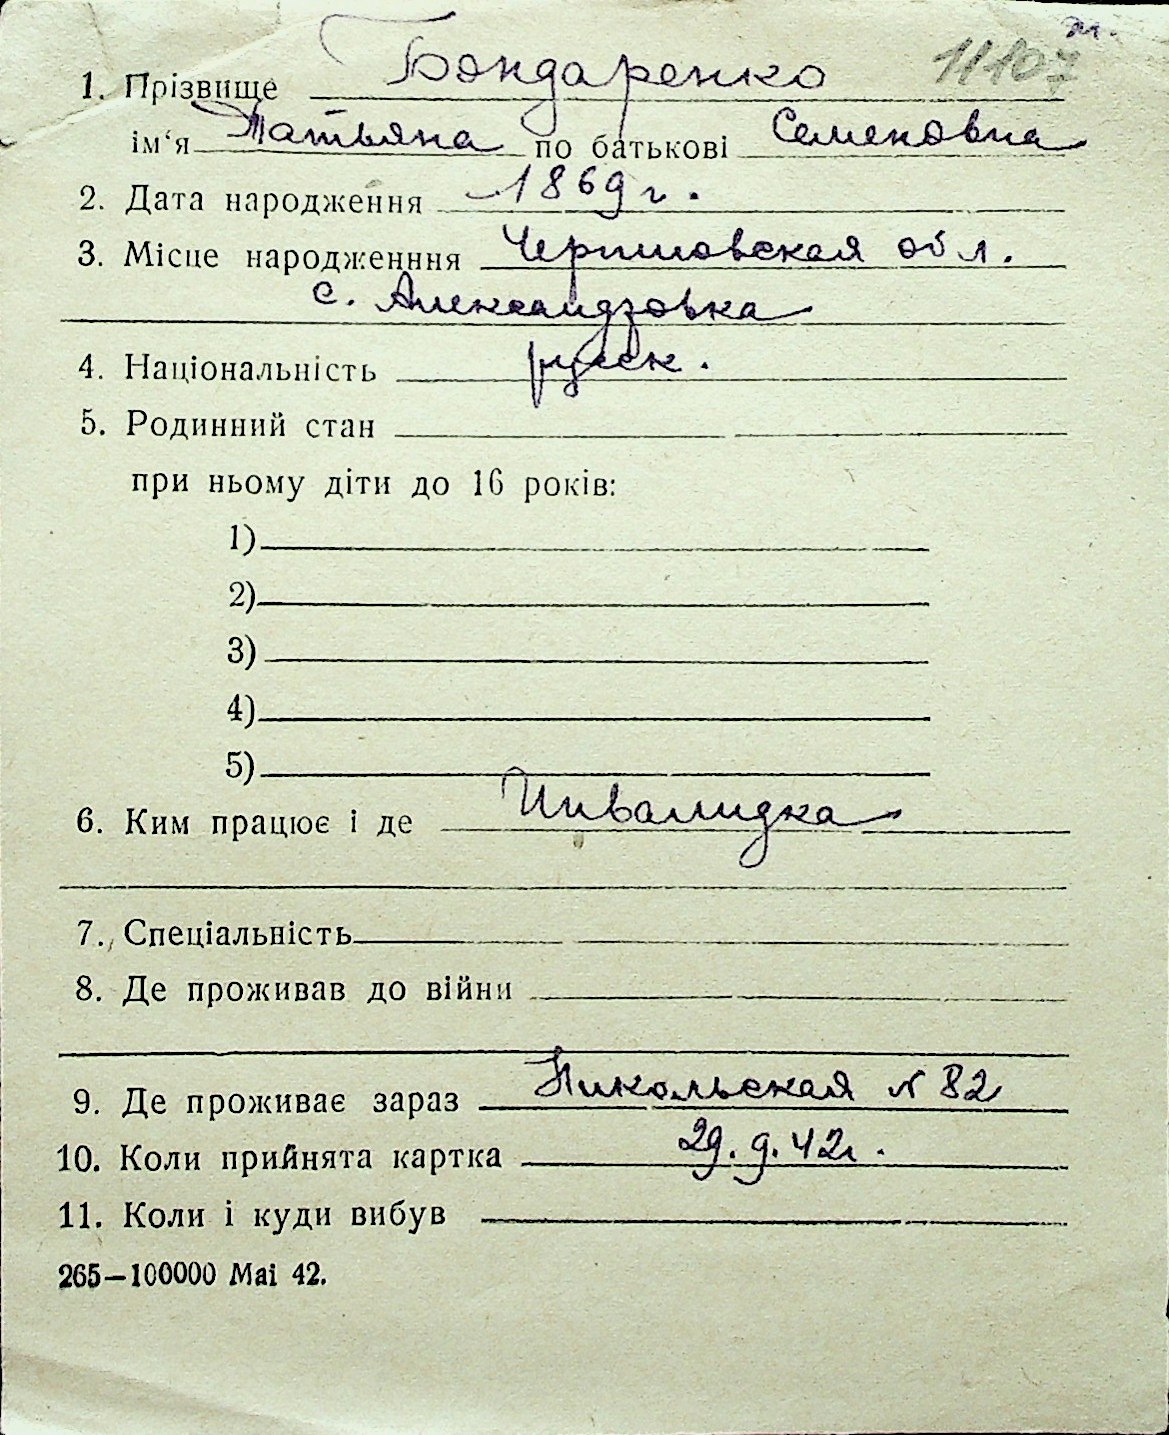 11107
1. Прізвище Бондаренко
ім‘я Татьяна по батькові Семеновна
2. Дата народження 1869 г.
3. Місце народженння Черниговская обл.
с. Александровка
4. Національність русск.
5. Родинний стан
при ньому діти до 16 років:
1)
2)
3)
4)
5)
6. Ким працює і де Инвалидка
7. Спеціальність
8. Де проживав до війни
9. Де проживає зараз Никольская № 82
10. Коли прийнята картка 29.9.42г.
11. Коли і куди вибув
265—100000 Mai 42.